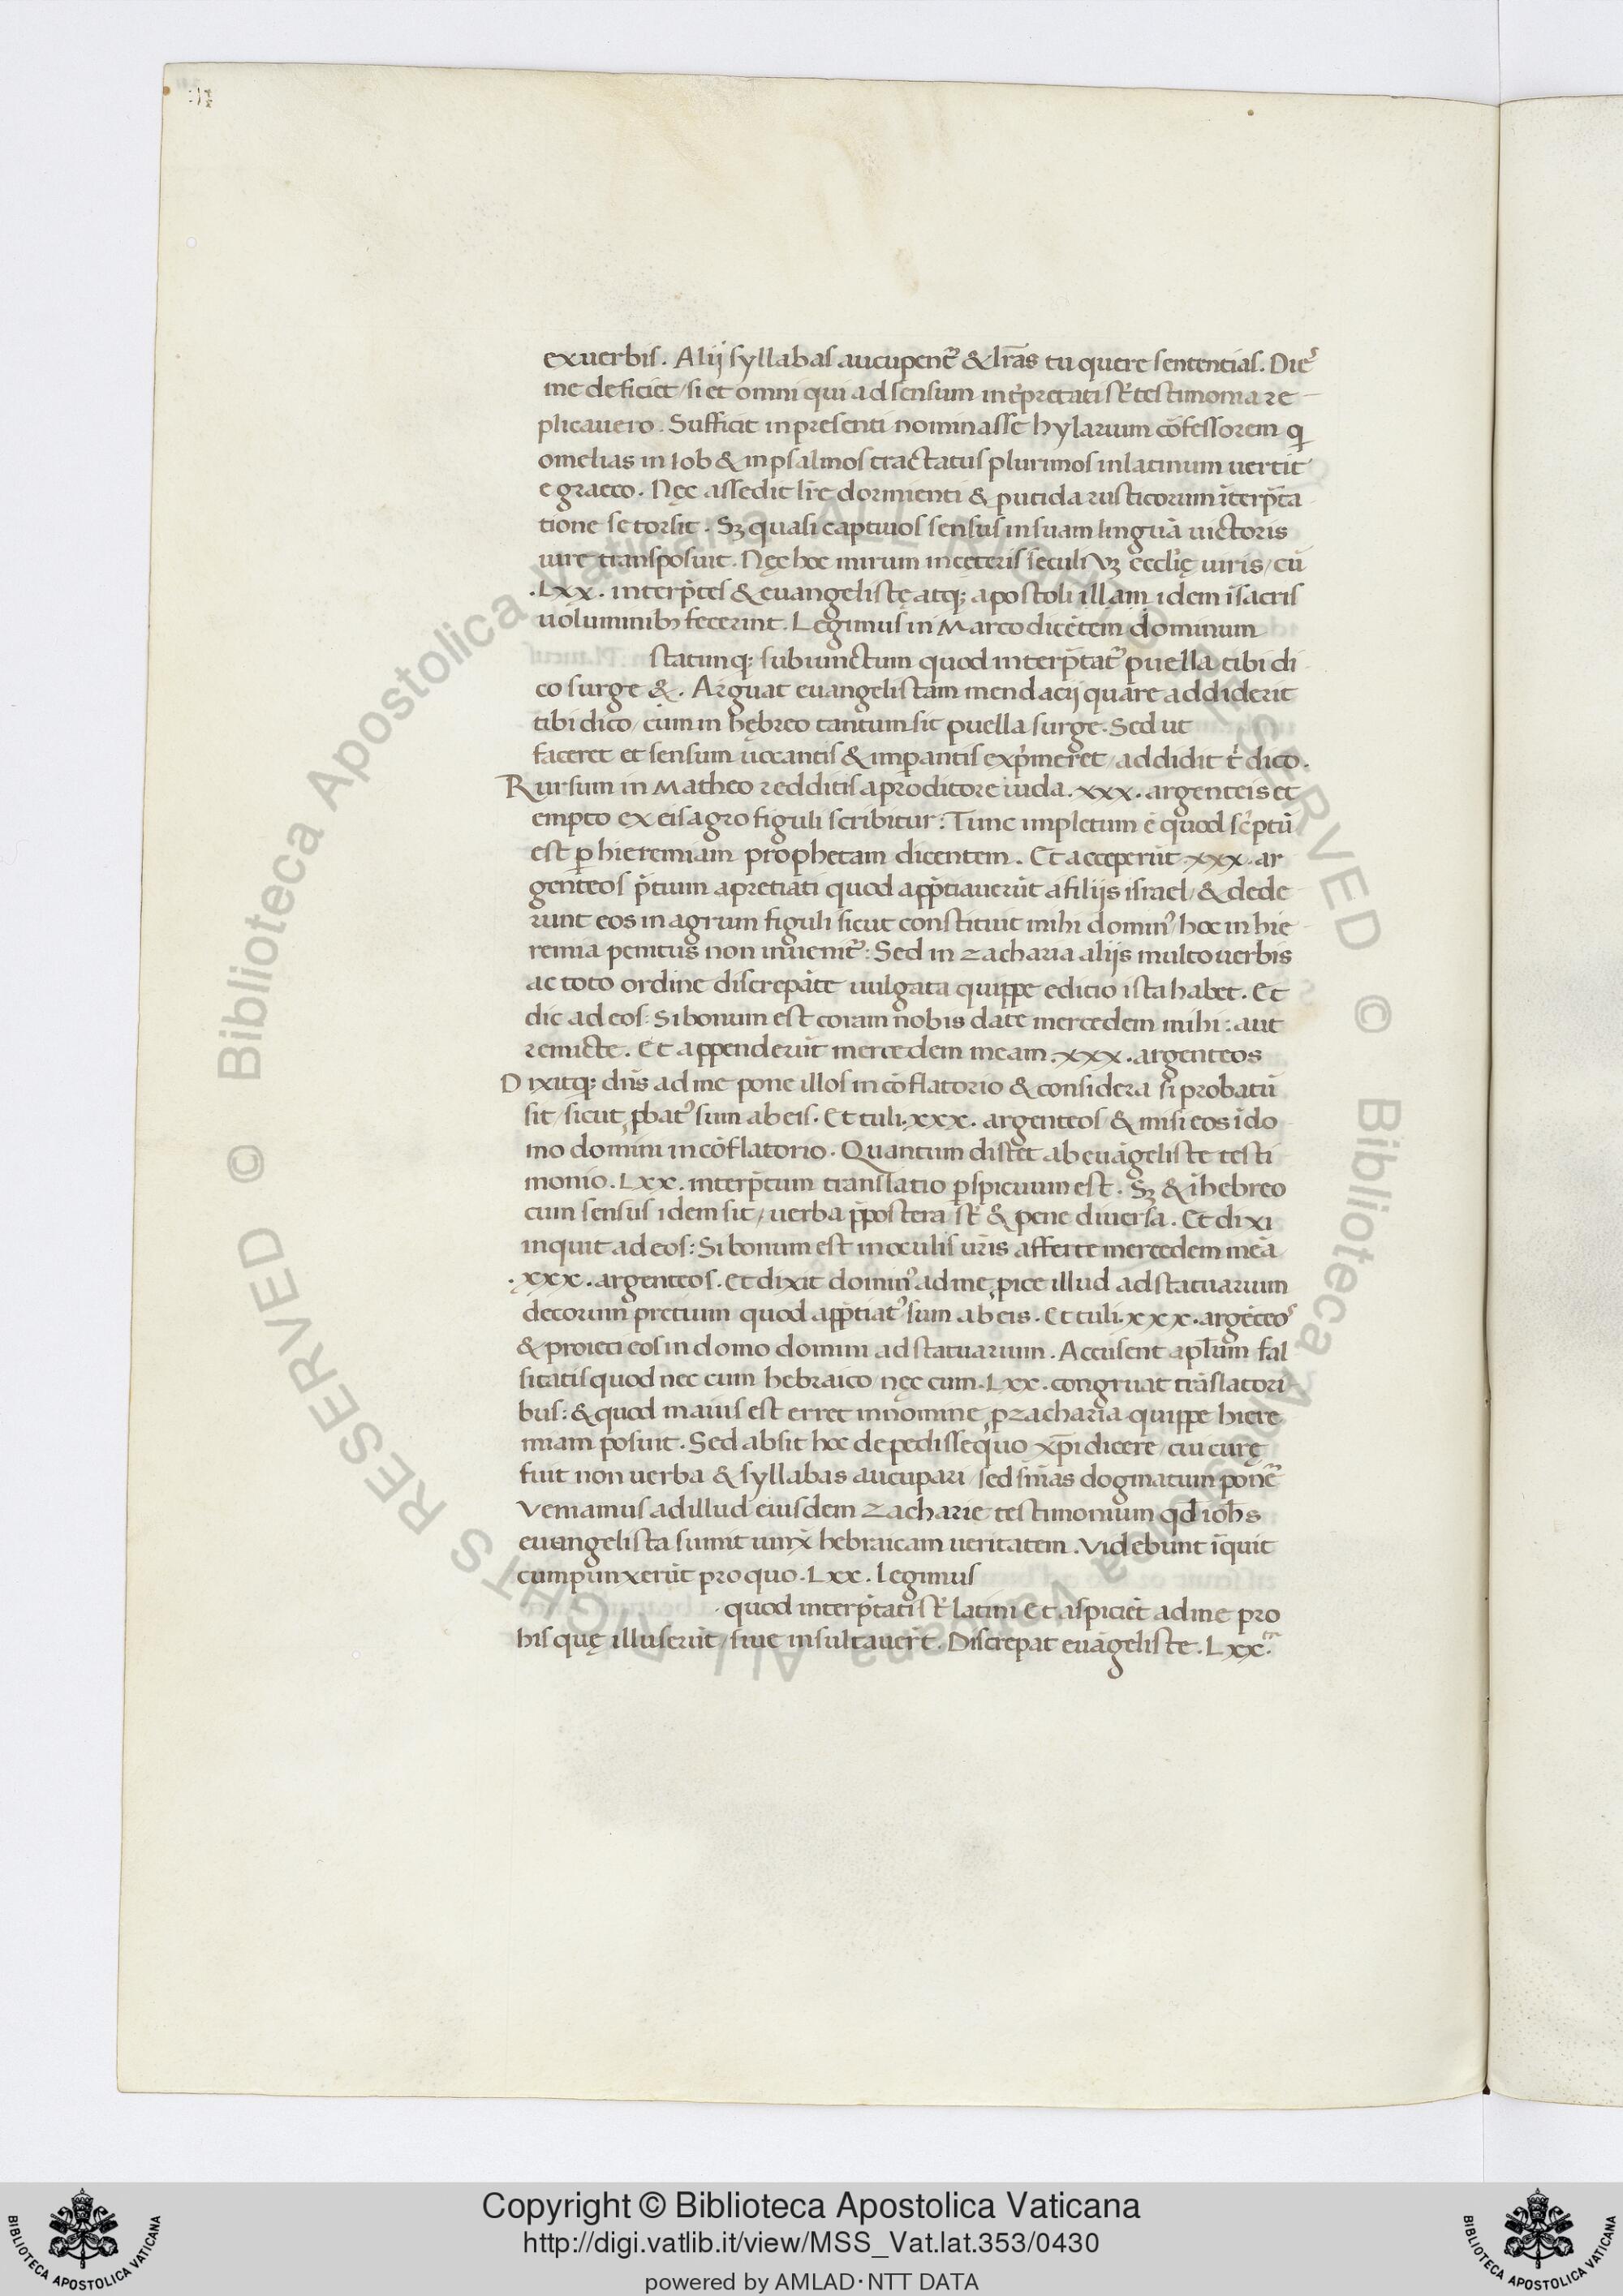 ex uerbis. Alij syllabas aucupent᷑ & lr̄as tu quere sententias. Die᷒
me deficiet / si et omni qui ad sensum int̓pretati st̄ testimonia re
plicauero. Sufficit in presenti nominasse hylarium cōfessorem q̓
omelias in Iob & in psalmos tractatus plurimos in latinum uertit
e graeco. Nęc assedit lr̄e dormienti & putida rusticorum īterp̄ta
tione se torsit. Sꝫ quasi captiuos sensus in suam linguā uictoris
iure transposuit. Nęc hoc mirum in ceteris seculi uꝫ eccl̓ię uiris / cū
.LXX. interp̄tes & euangelistę atqꝫ apostoli illam idem ī sacris
uoluminibꝫ fecerint. Legimus in Marco dicētem dominum
statimqꝫ subiunctum quod interp̄tat᷑ puella tibi di
co surge &. Arguat euangelistam mendacij quare addiderit
tibi dico / cum in hębreo tantum sit puella surge. Sed ut
faceret et sensum uocantis & imꝑantis exp̓meret / addidit t̓ dico.
Rursum in Matheo redditis a proditore iuda .xxx. argenteis et
empto ex eis agro figuli scribitur: Tunc impletum ē quod sc̓ptū
est ꝑ hieremiam prophetam dicentem. Et acceperūt .xxx. ar
genteos p̄tium apretiati quod app̄tiauerūt a filijs israel / & dede
runt eos in agrum figuli sicut constituit mihi domin᷒ / hoc in hie
remia penitus non inuenit᷑: Sed in zacharia alijs multo uerbis
ac toto ordine discrepāte uulgata quippe editio ista habet. Et
dic ad eos: Si bonum est coram nobis date mercedem mihi: aut
remicte. Et appenderūt mercedem meam .xxx. argenteos
Dixitqꝫ dn̄s ad me pone illos in cōflatorio & considera si probatū
sit / sicut ꝓbat᷒ sum ab eis. Et tuli .xxx. argenteos & misi eos ī do
mo domini in cōflatorio. Quantum distet ab euāgeliste testi
monio .LXX. interp̄tum translatio ꝑspicuum est. Sꝫ & ī hebreo
cum sensus idem sit / uerba p̄postera st̄ & pene diuersa. Et dixi
inquit ad eos: Si bonum est in oculis ur̄is afferte mercedem meā
.xxx. argenteos. Et dixit domin᷒ ad me ꝓice illud ad statuarium
decorum pretium quod app̄tiat᷒ sum ab eis. Et tuli .xxx. argēteo᷒
& proieci eos in domo domini ad statuarium. Accusent apl̄um fal
sitatis quod nec cum hebraico nęc cum .LXX. congruat trāslatori
bus: & quod maius est erret in nomine ꝓ zacharia quippe hiere
miam posuit. Sed absit hoc de pedissequo xp̄i dicere / cui curę
fuit non uerba & syllabas aucupari / sed sn̄ias dogmatum ponē᷑
Veniamus ad illud eiusdem Zacharie testimonium qd̄ ioh̄s
euangelista sumit iuxͣ hebraicam ueritatem. Videbunt īquit
cumpunxerūt pro quo .LXX. legimus
quod interp̄tati st̄ latini Et aspiciēt ad me pro
his quę illuserūt / siue insultauer̄t. Discrepat euāgeliste .LXX.